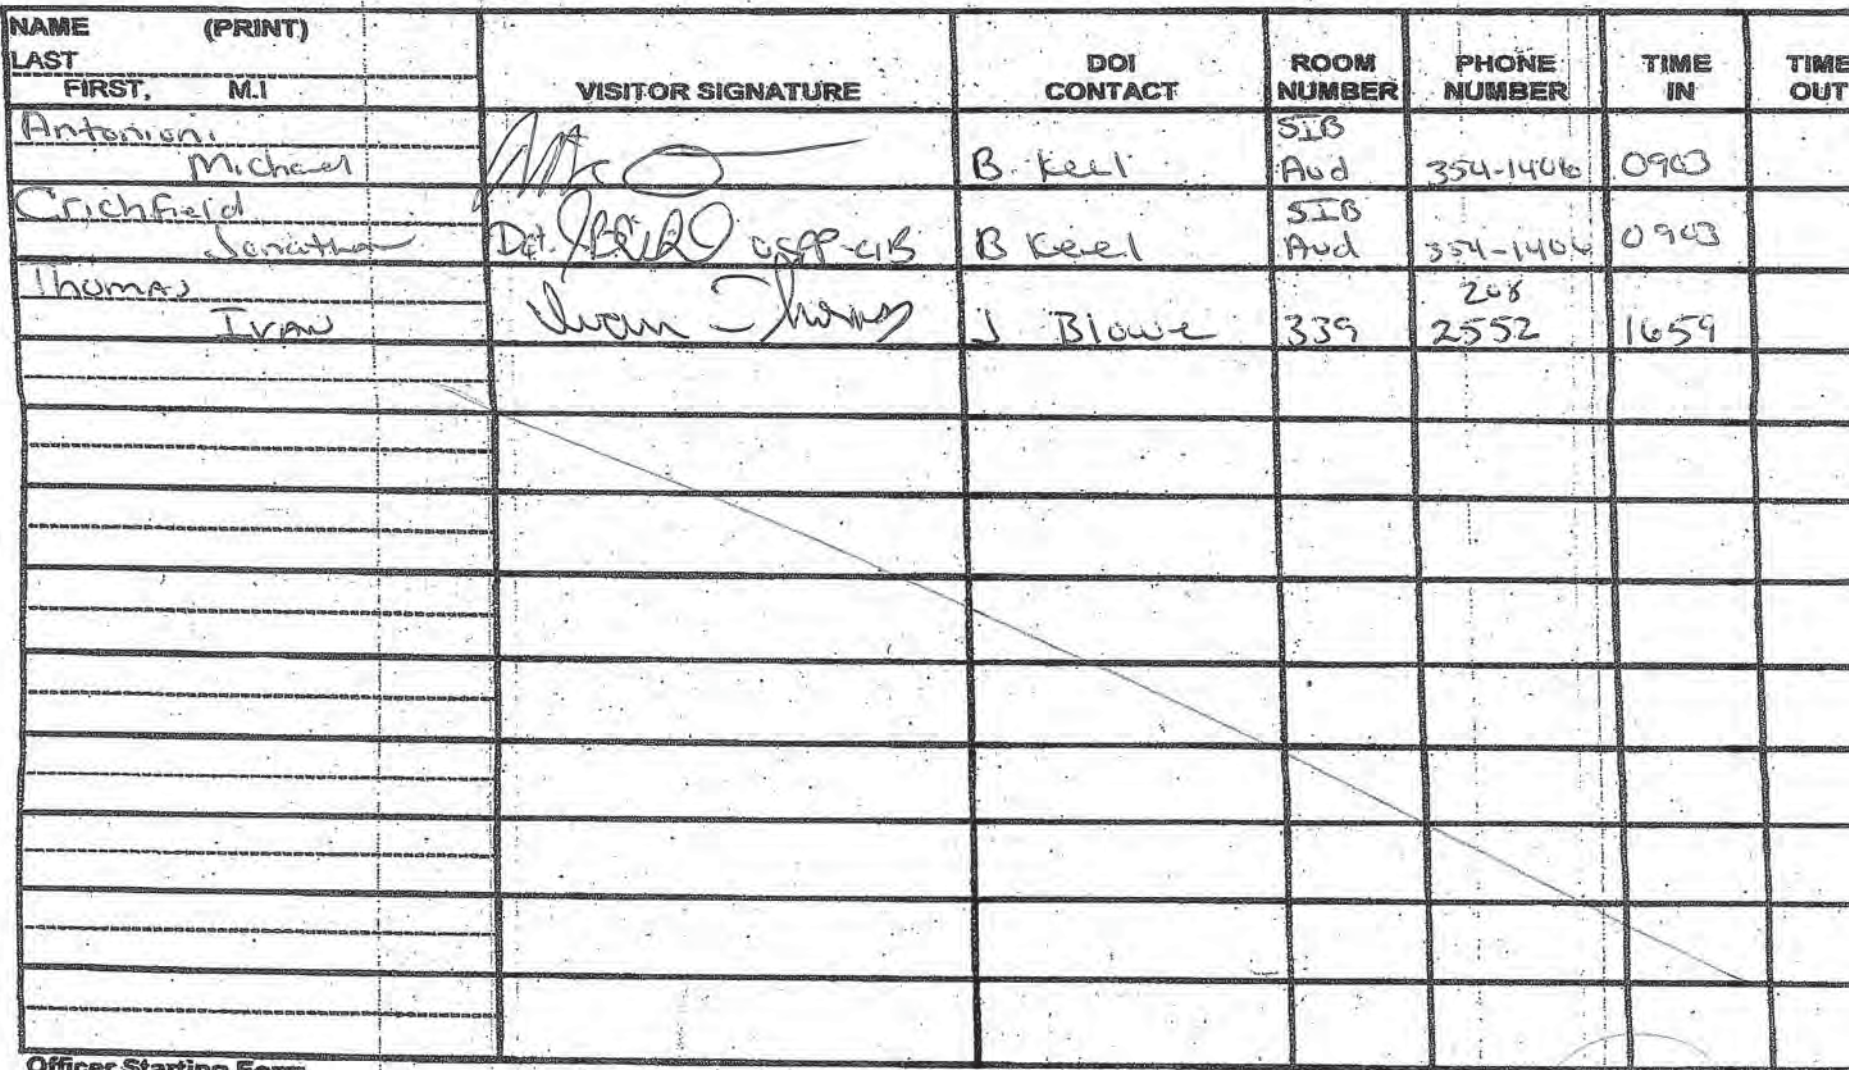 NAME (PRINT)
LAST
FIRST, M.I
VISITOR SIGNATURE
DOI CONTACT
ROOM NUMBER
PHONE NUMBER
TIME IN
TIME OUT
Antonioni
Michael
B. Keel
SIB
Aud
354-1406
0903
Crichfield
Jonathan
Det. USPP-CIB
B Keel
SIB
Aud
354-1406
0903
Thomas
IVAN
Ivan Thomas
J Blowe
339
208
2552
1659
Officer Starting Form